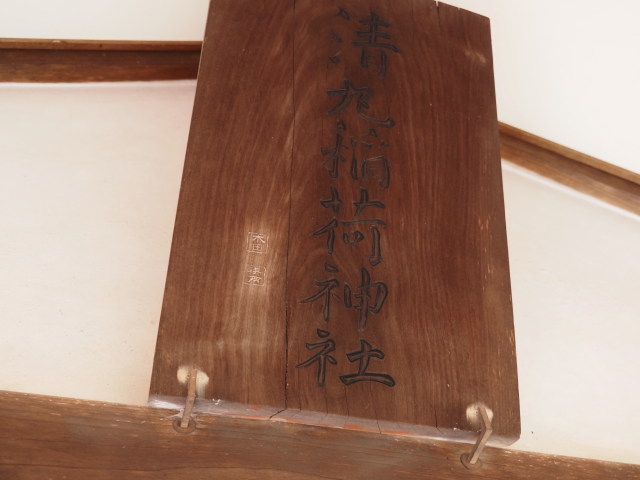 清九稲荷神社